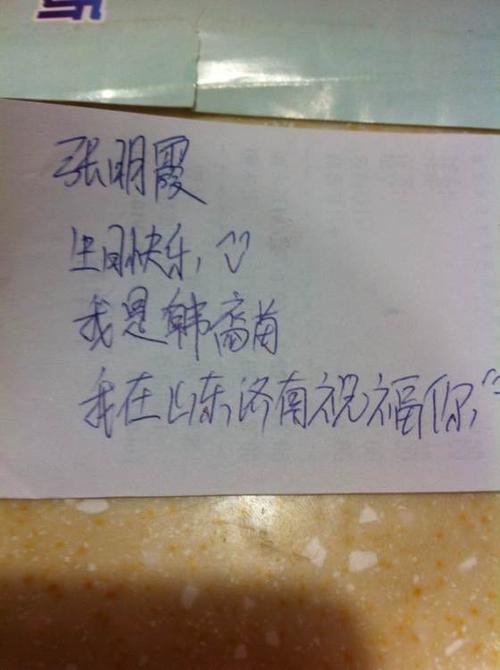 张明霞
生日快乐,
我是韩裔苗
我在山东济南祝福你,